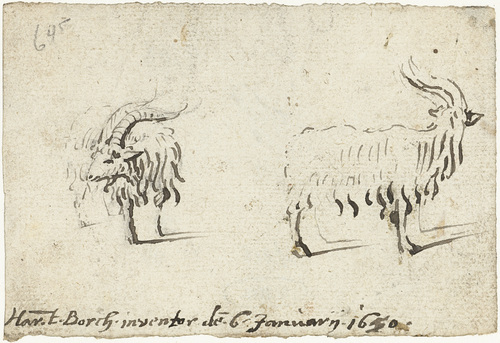 645
Har. t. Borch. inventor de. 6. Januarij. 1650.